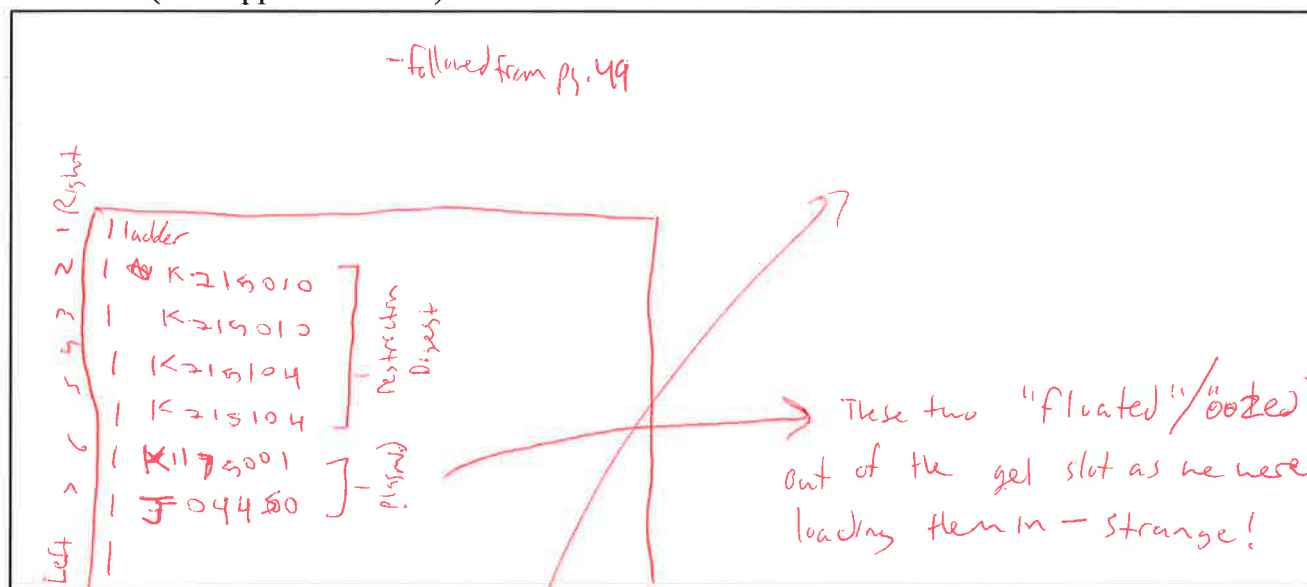 - followed from pg. 49
Right
1 | ladder
2 | K215010
3 | K215010
4
5 | K215104
| K215104
6 | K1175001
7 | J04450
Left |
Restriction
Digest
Plasmid
These two "floated"/"oozed"
out of the gel slot as we were
loading them in — strange!